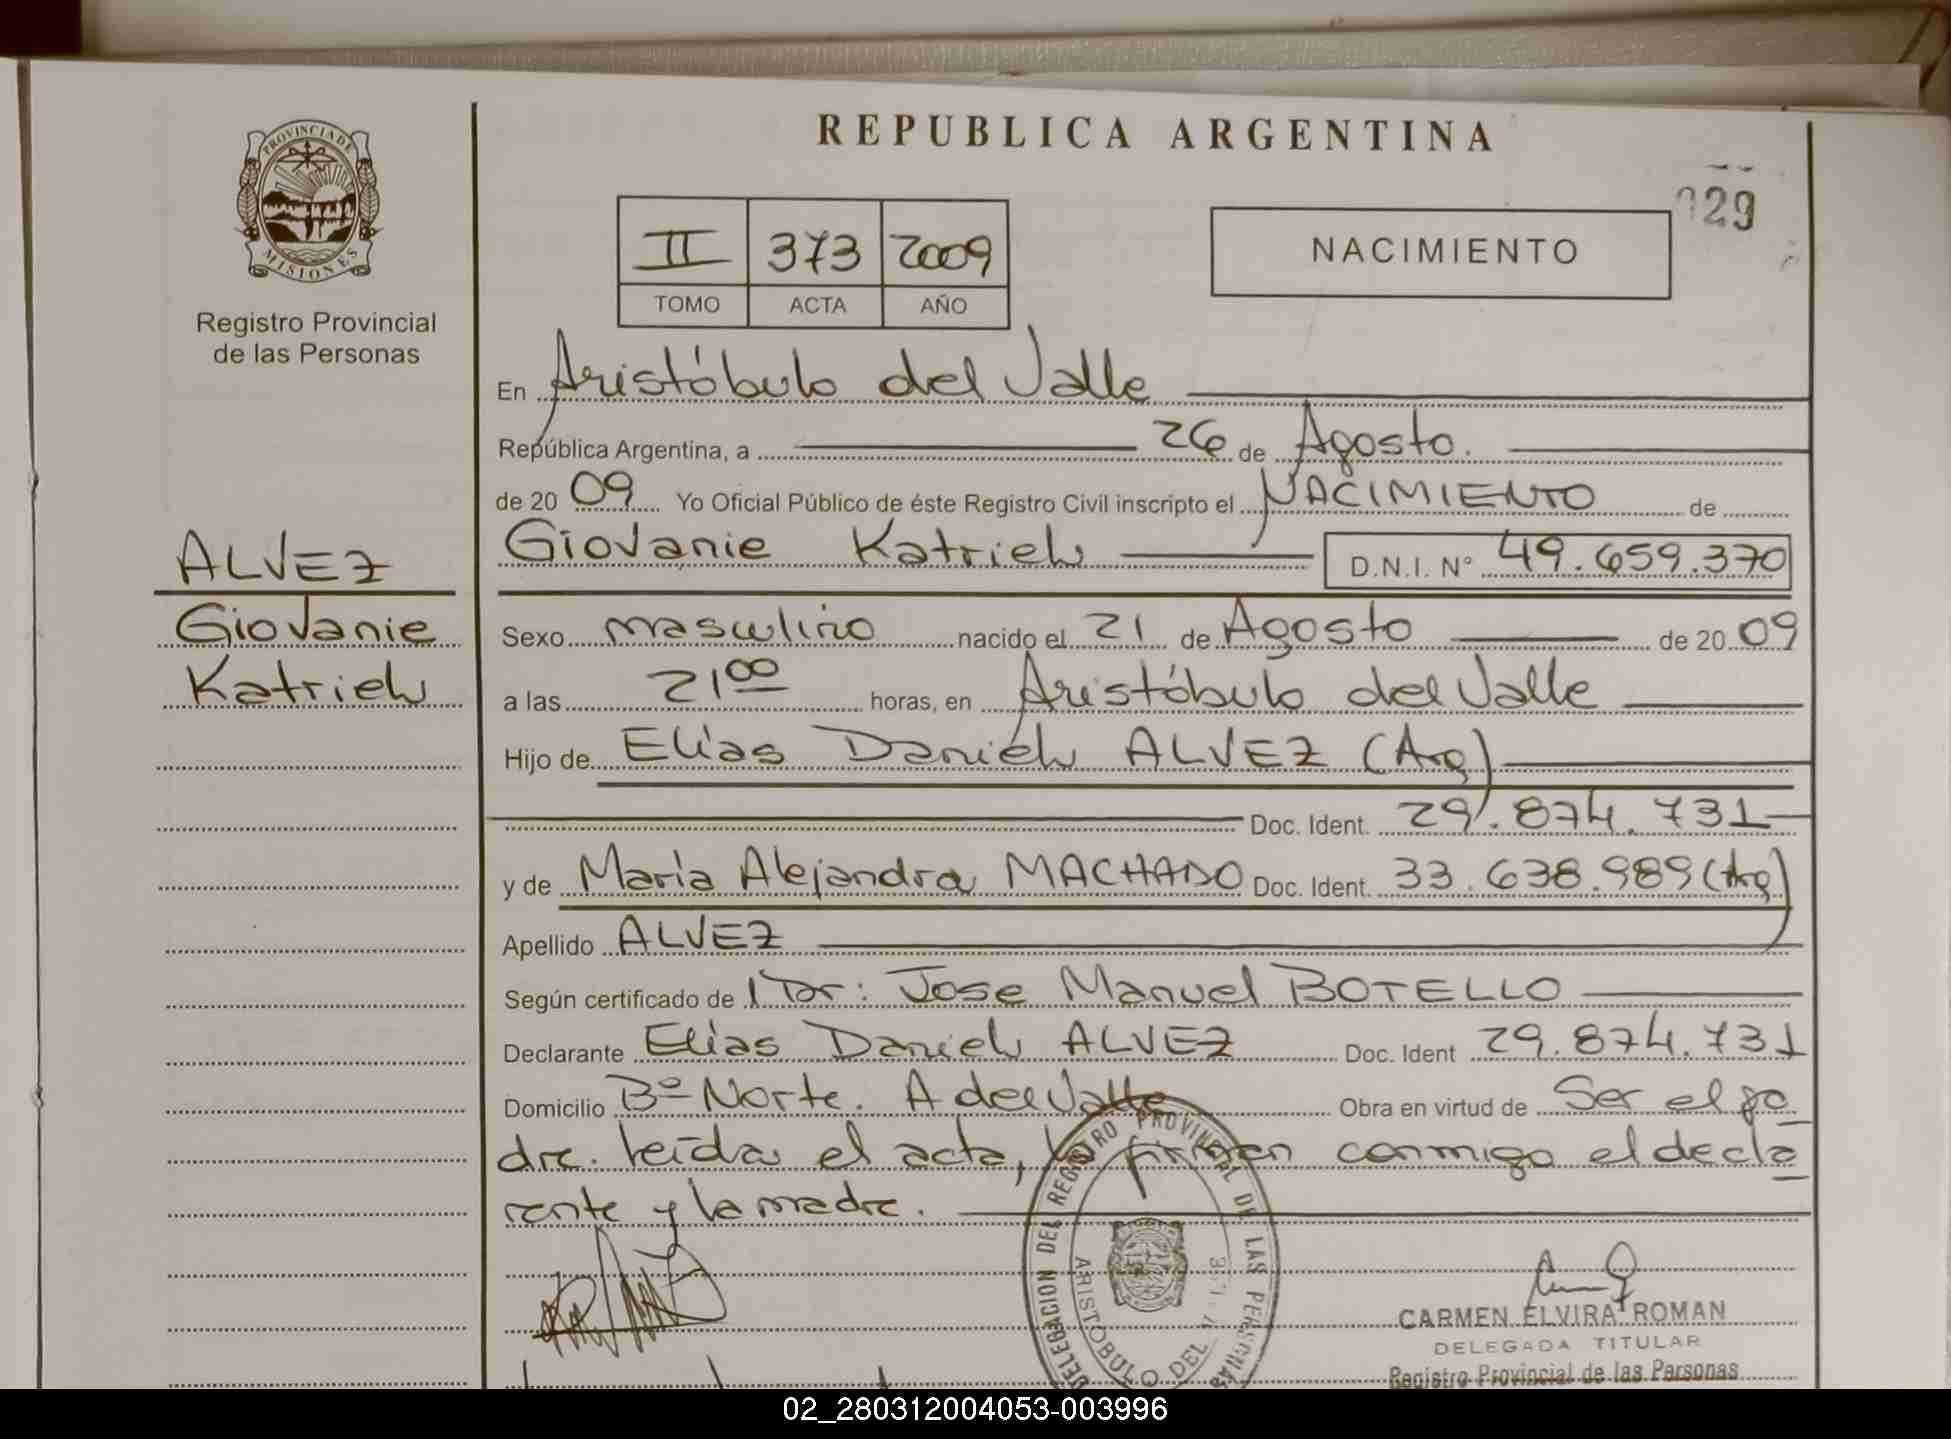 REPUBLICA ARGENTINA
029
PROVINCIA DE
MISIONES
Registro Provincial
de las Personas
II 373 2009
TOMO ACTA AÑO
NACIMIENTO
En Aristóbulo del Valle
República Argentina, a 26 de Agosto.
de 20 09 Yo Oficial Público de éste Registro Civil inscripto el NACIMIENTO de
Giovanie Katriel D.N.I. N° 49.659.370
ALVEZ
Giovanie
Katriel
Sexo masculino nacido el 21 de Agosto de 20 09
a las 21 00 horas, en Aristóbulo del Valle
Hijo de Elías Daniel ALVEZ (Arg)
Doc. Ident. 29.874.731
y de María Alejandra MACHADO Doc. Ident. 33.638.989 (Arg)
Apellido ALVEZ
Según certificado de Dr: Jose Manuel BOTELLO
Declarante Elías Daniel ALVEZ Doc. Ident 29.874.731
Domicilio Bº Norte. A del Valle Obra en virtud de Ser el pa
dre. leída el acta, firman conmigo el decla
rante y la madre.
DELEGACION DEL REGISTRO PROVINCIAL DE LAS PERSONAS
ARISTOBULO DEL
CARMEN ELVIRA ROMAN
DELEGADA TITULAR
Registro Provincial de las Personas
02_280312004053-003996